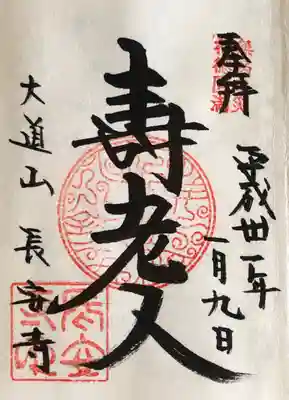 奉拝
平成丗一年
一月九日
寿老人
大道山 長安寺